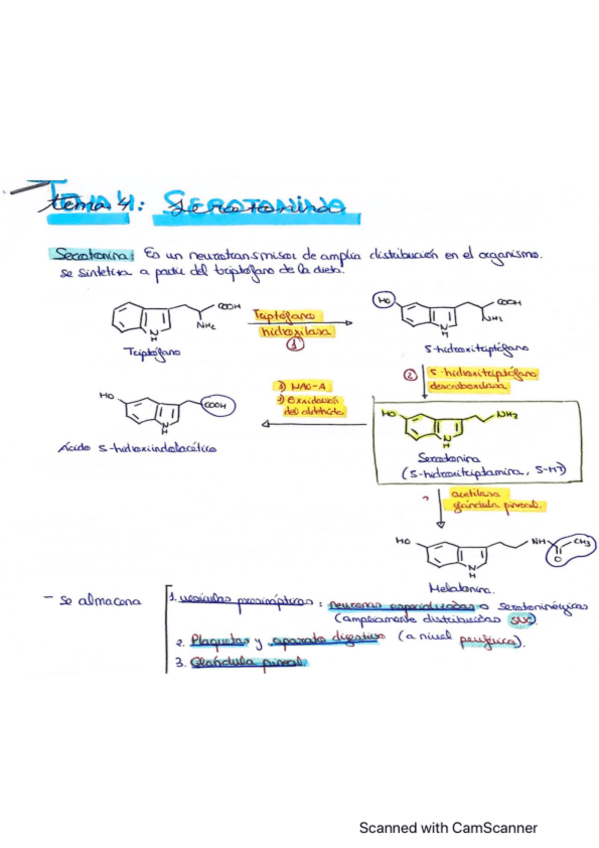 Tema 4: Serotonina
Serotonina: Es un neurotransmisor de amplia distribución en el organismo.
se sintetiza a partir del triptófano de la dieta.
COOH
NH₂
N
H
Triptófano
Triptófano
hidroxilasa
1
HO
COOH
NH₂
N
H
5-hidroxitriptófano
2 5-hidroxitriptófano
descarboxilasa
HO
COOH
N
H
Ácido 5-hidroxiindolacético
1) MAO-A
2) Oxidación
del aldehído
HO
NH₂
N
H
Serotonina
(5-hidroxitriptamina, 5-HT)
acetilasa
glándula pineal.
HO
NH
CH₃
O
N
H
Melatonina.
- se almacena
1. vesículas presinápticas: neuronas especializadas o serotoninérgicas
(ampliamente distribuidas SNC).
2. Plaquetas y aparato digestivo (a nivel periférico).
3. Glándula pineal.
Scanned with CamScanner